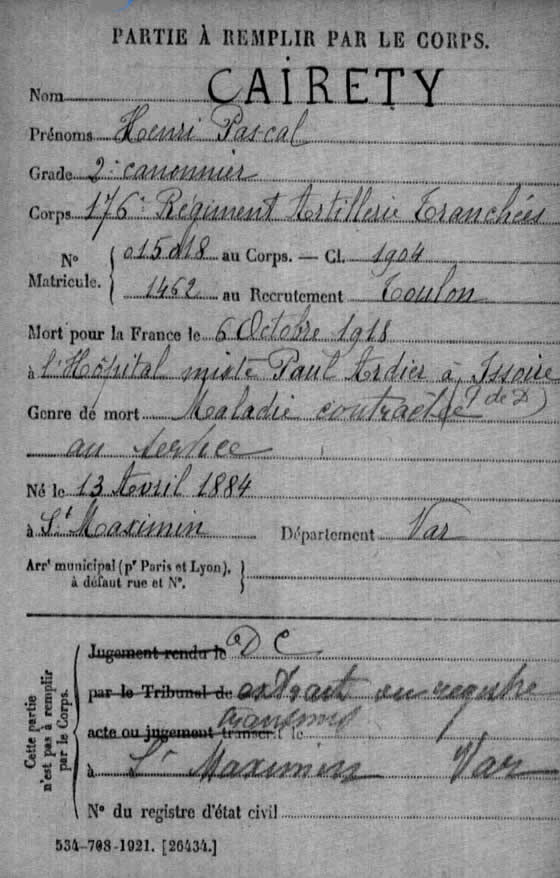 PARTIE À REMPLIR PAR LE CORPS.
Nom CAIRETY
Prénoms Henri Pascal
Grade 2e canonnier
Corps 176e Régiment Artillerie Tranchées
N° Matricule. { 015018 au Corps. — Cl. 1904
1462 au Recrutement Toulon
Mort pour la France le 6 Octobre 1918
à l'Hôpital mixte Paul Ardier à Issoire
(P de D)
Genre de mort Maladie contractée
au service
Né le 13 Avril 1884
à St Maximin Département Var
Arrt municipal (pr Paris et Lyon), à défaut rue et N°. }
Cette partie n'est pas à remplir par le Corps.
Jugement rendu le D C
par le Tribunal de extrait au registre
transmis
acte ou jugement transcrit le
à St Maximin Var
N° du registre d'état civil
534-708-1921. [26434.]